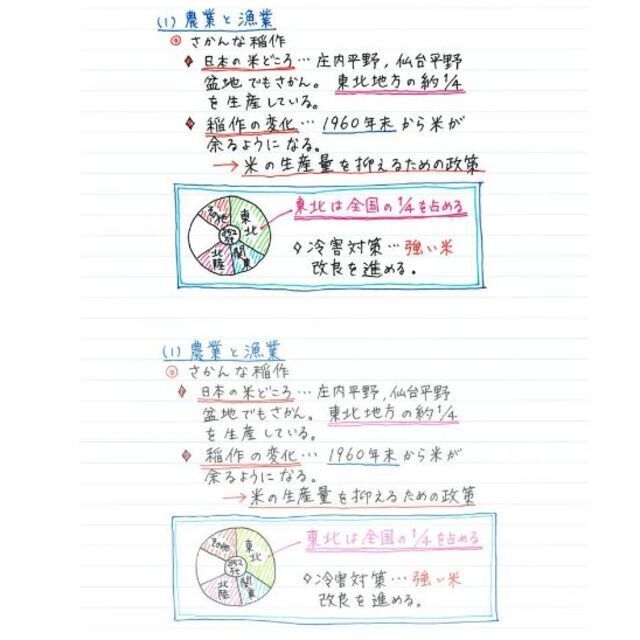 (1) 農業と漁業
◎ さかんな稲作
◆ 日本の米どころ… 庄内平野, 仙台平野
盆地でもさかん。 東北地方の約1/4
を生産している。
◆ 稲作の変化… 1960年末から米が
余るようになる。
→ 米の生産量を抑えるための政策
その他
東北
関東
北陸
852万t
東北は全国の1/4を占める
◇ 冷害対策… 強い米
改良を進める。
(1) 農業と漁業
◎ さかんな稲作
◆ 日本の米どころ… 庄内平野, 仙台平野
盆地でもさかん。 東北地方の約1/4
を生産している。
◆ 稲作の変化… 1960年末から米が
余るようになる。
→ 米の生産量を抑えるための政策
その他
東北
関東
北陸
852万t
東北は全国の1/4を占める
◇ 冷害対策… 強い米
改良を進める。